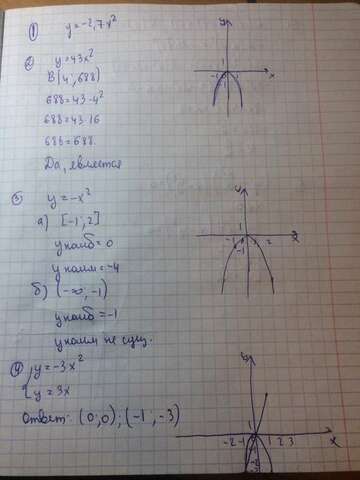 ① y=-2,7x²
② y=43x²
B(4;688)
688=43·4²
688=43·16
688=688.
Да, является
③ y=-x²
а) [-1;2]
yнаиб=0
yнаим=-4
б) (-∞;-1)
yнаиб=-1
yнаим не сущ.
④ y=-3x²
y=3x
Ответ: (0;0);(-1,-3)